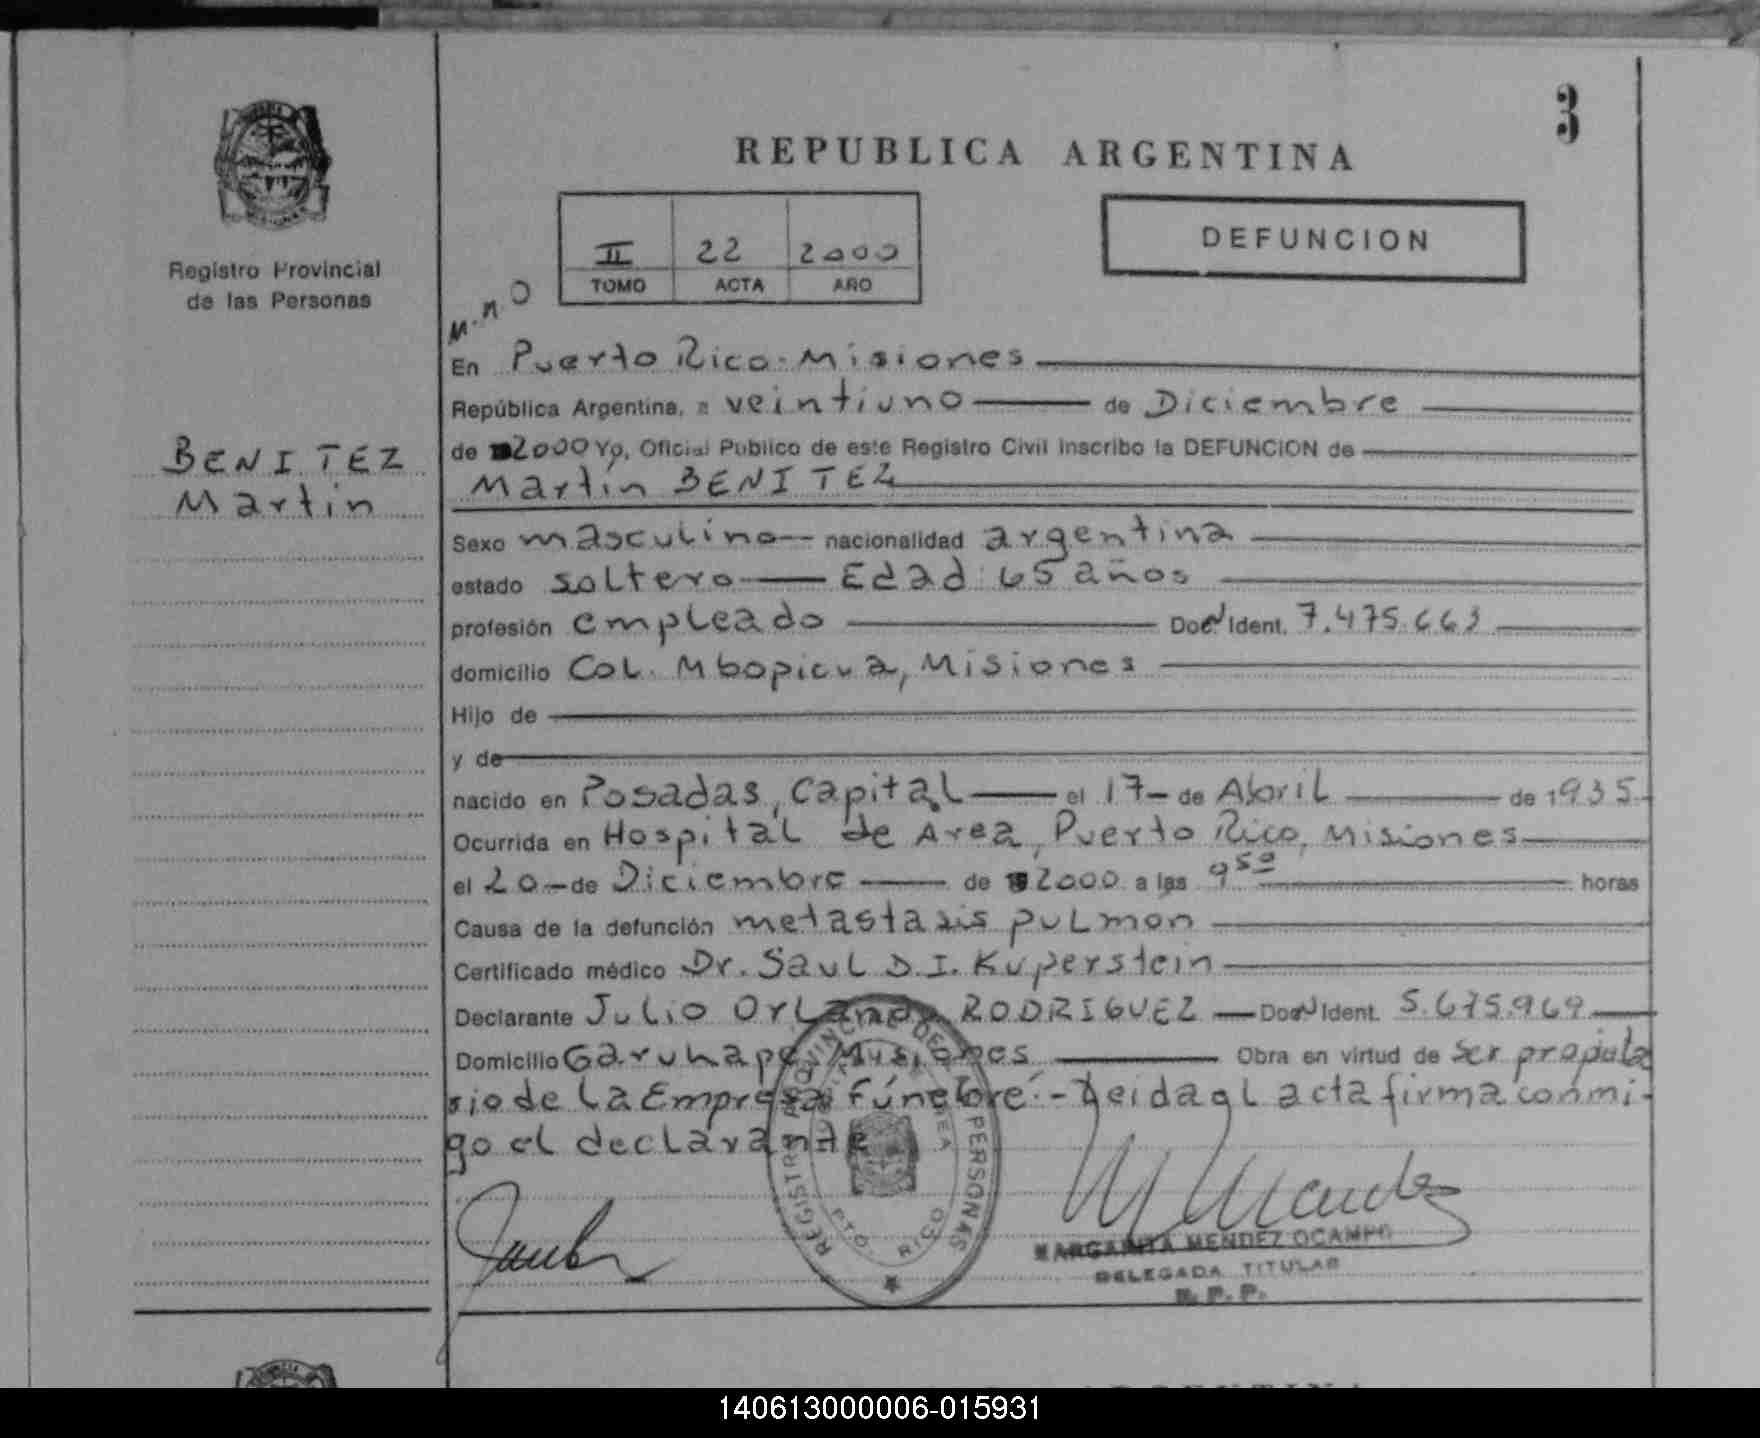 3
REPUBLICA ARGENTINA
Registro Provincial
de las Personas
BENITEZ
Martin
II 22 2000
TOMO ACTA AÑO
DEFUNCION
M.n.O
En Puerto Rico. Misiones
República Argentina, a veintiuno de Diciembre
de 2000 Yo, Oficial Publico de este Registro Civil inscribo la DEFUNCION de
Martin BENITEZ
Sexo masculino nacionalidad argentina
estado soltero Edad: 65 años
profesión empleado Doc. Ident. 7.475.663
domicilio Col. Mbopicua, Misiones
Hijo de
y de
nacido en Posadas, Capital el 17 de Abril de 1935
Ocurrida en Hospital de Area, Puerto Rico, Misiones
el 20 de Diciembre de 2000 a las 9⁵⁰ horas
Causa de la defunción metastasis pulmon
Certificado médico Dr. Saul D.I. Kuperstein
Declarante Julio Orlando RODRIGUEZ Doc. Ident. 5.675.969
Domicilio Garuhape, Misiones Obra en virtud de ser propieta
rio de la Empresa Fúnebre.- Leida el acta firma conmi-
go el declarante
REGISTRO PROVINCIAL DE LAS PERSONAS
PTO. RICO
MARGARITA MENDEZ OCAMPO
DELEGADA TITULAR
R. P. P.
140613000006-015931